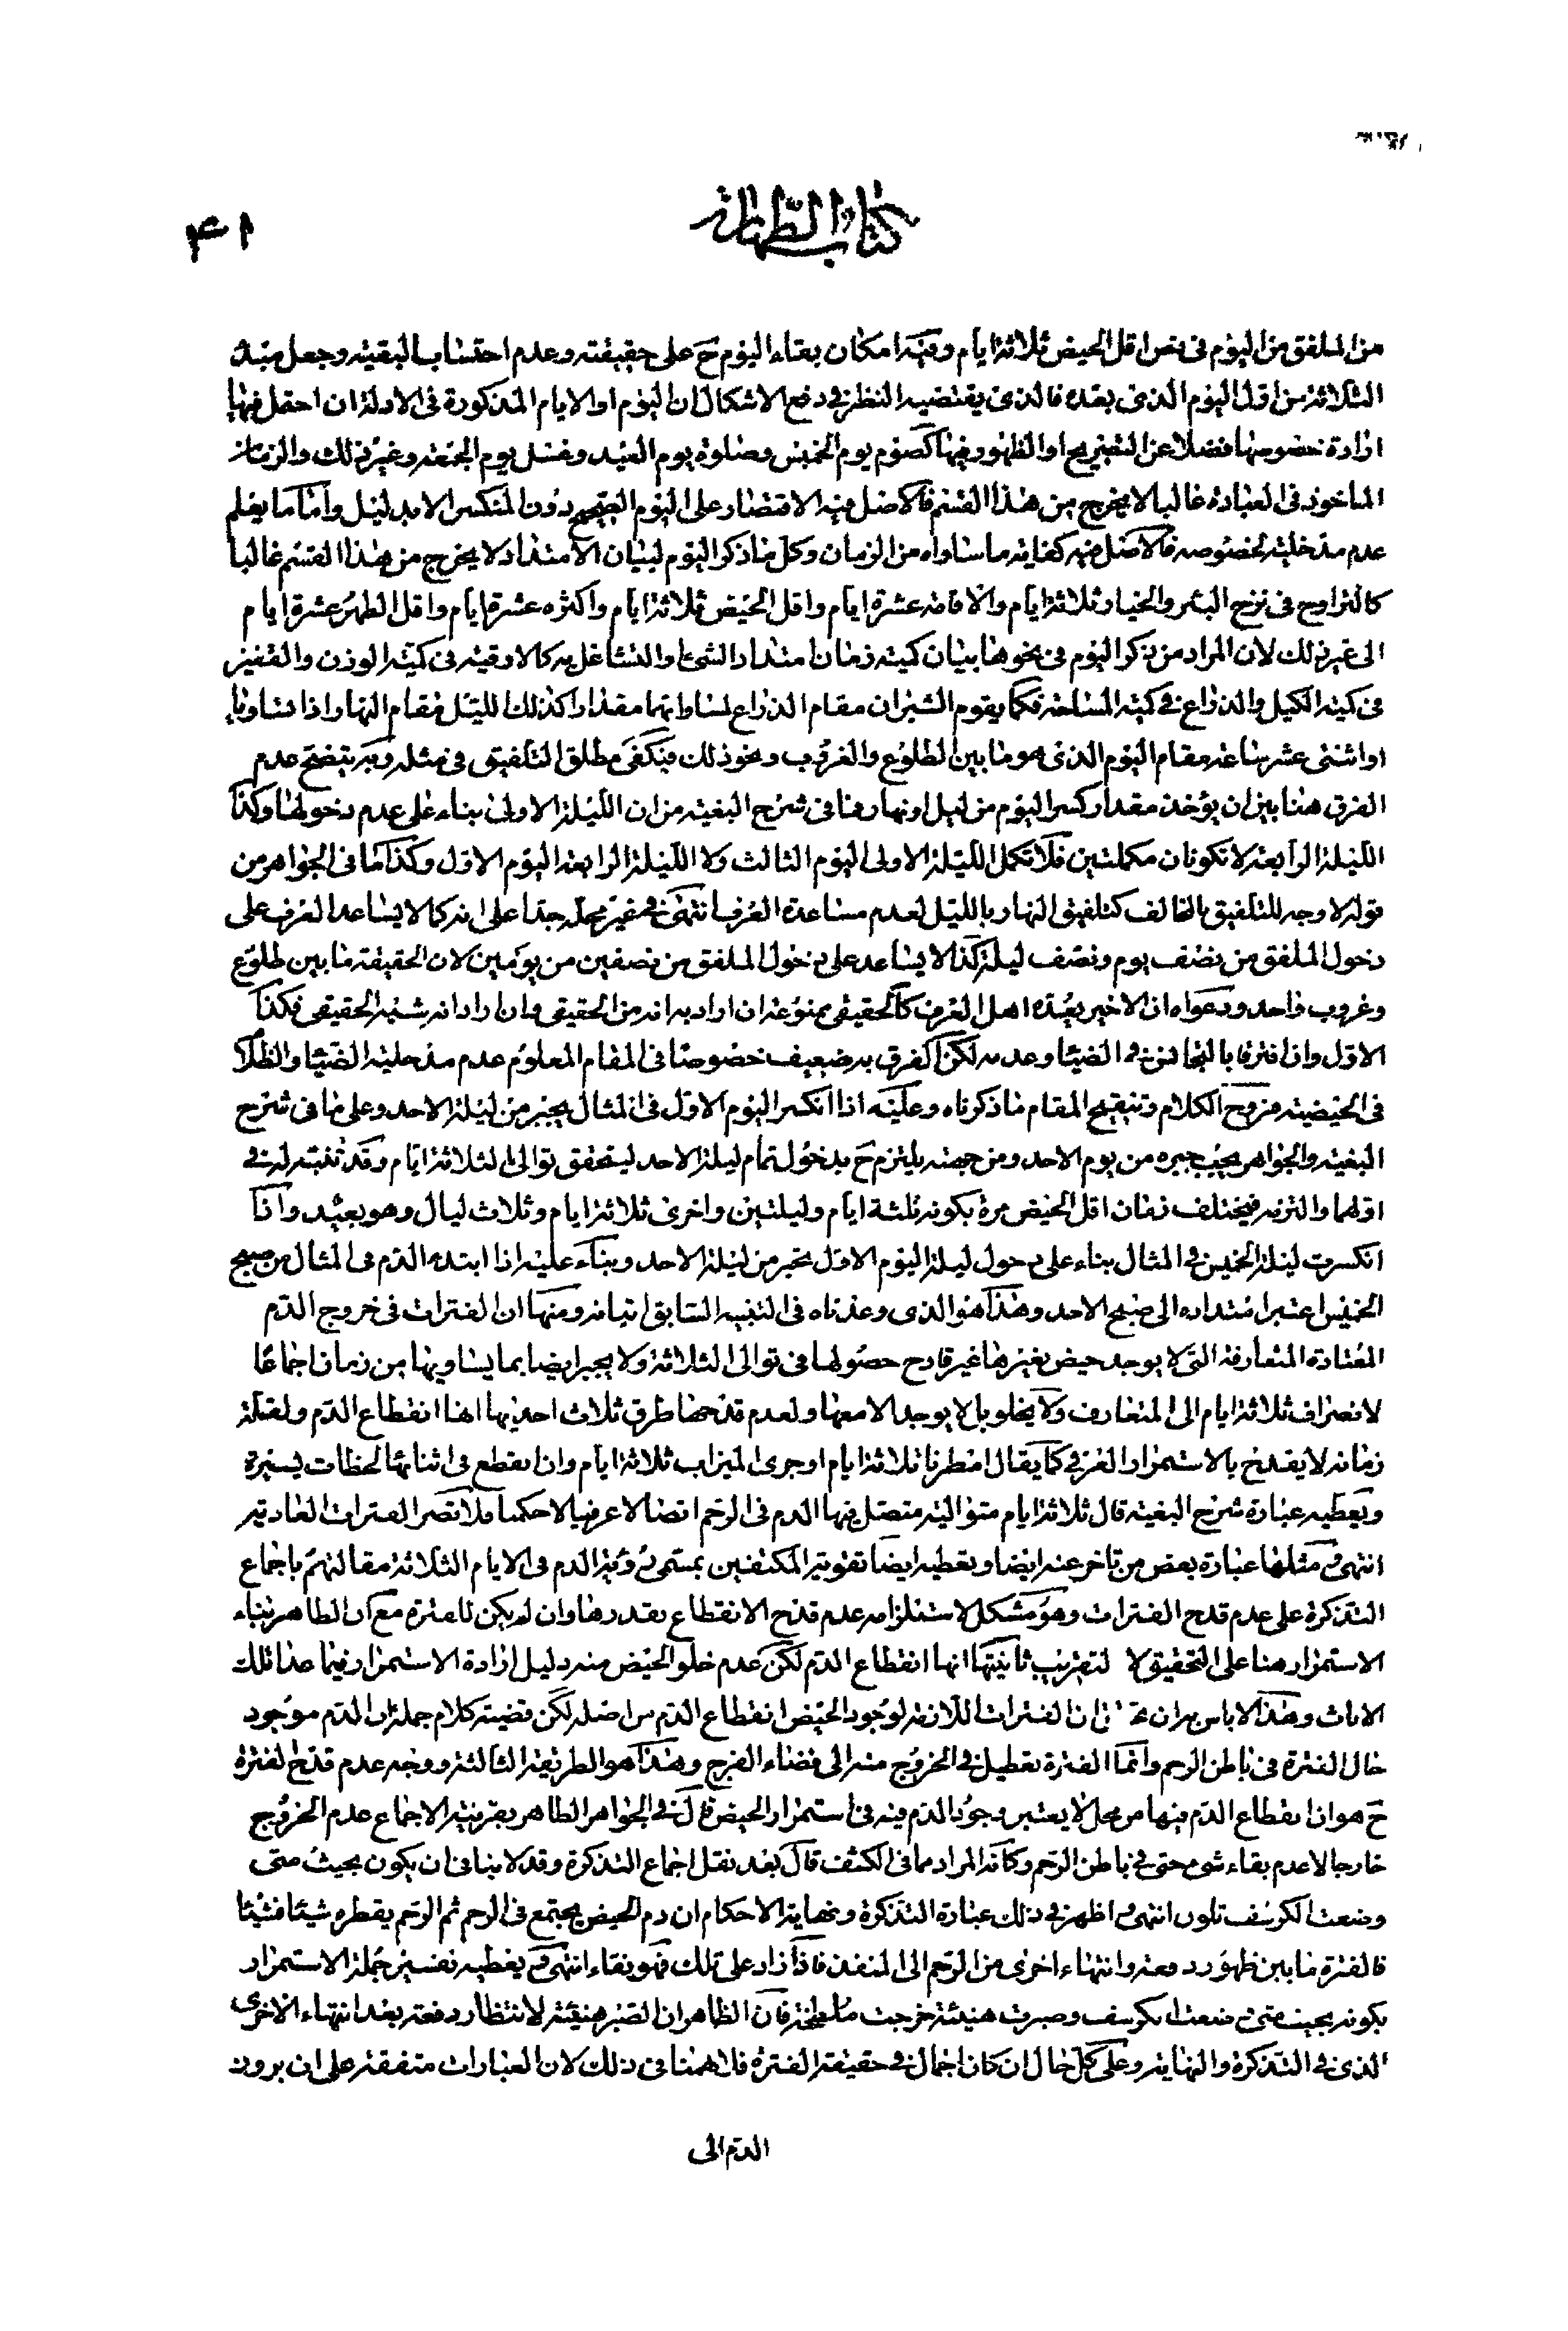 كتاب الطهارة
٤١
من الملفق من اليوم فى نص اقل الحيض ثلاثة ايام وفيه امكان بقاء اليوم ح على حقيقته وعدم احتساب البقية وجعل مبدء
الثلاثة من اول اليوم الذى بعده فالذى يقتضيه النظر فى دفع الاشكال ان اليوم او الايام المذكورة فى الادلة ان احتمل فيها
ارادة خصوصها فضلا عن التصريح او الظهور فيها كصوم يوم الخميس وصلوة يوم العيد وغسل يوم الجمعة وغير ذلك والزمان
الماخوذ فى العبادة غالبا لا يخرج من هذا القسم فالاصل فيه الاقتضار على اليوم الصحيح دون المنكسر الا بدليل وأما ما يعلم
عدم مدخلية لخصوصه فالاصل فيه كفاية ما ساواه من الزمان وكل ما ذكر اليوم لبيان الامتداد لا يخرج من هذا القسم غالبا
كالتراوح فى نزح البئر والخيار ثلاثة ايام والاقامة عشرة ايام واقل الحيض ثلاثة ايام واكثره عشرة ايام واقل الطهر عشرة ايام
الى غير ذلك لان المراد من ذكر اليوم فى نحوها بيان كمية زمان امتداد الشئ او التشاغل به كالاوقية فى كمية الوزن والقفيز
فى كمية الكيل والذراع فى كمية المساحة فكما يقوم الشبران مقام الذراع لمساواتهما مقدارا كذلك الليل مقام النهار اذا تساويا
او اثنتى عشر ساعة مقام اليوم الذى هو ما بين الطلوع والغروب ونحو ذلك فيكفى مطلق التلفيق فى مثله وبه يتضح عدم
الفرق هنا بين ان يؤخذ مقدار كسر اليوم من ليل او نهار فما فى شرح البغية من ان الليلة الاولى بناء على عدم دخولها وكذا
الليلة الرابعة لا تكونان مكملتين فلا تكمل الليلة الاولى اليوم الثالث ولا الليلة الرابعة اليوم الاول وكذا ما فى الجواهر من
قوله لا وجه للتلفيق بالمخالف كتلفيق النهار بالليل لعدم مساعدة العرف انتهى فى غير محله جدا على انه كما لا يساعد العرف على
دخول الملفق من نصف يوم ونصف ليلة كذا لا يساعد على دخول الملفق من نصفين من يومين لان الحقيقة ما بين طلوع
وغروب واحد ودعواه ان الاخير يعده اهل العرف كالحقيقى ممنوعة ان اراد به انه من الحقيقى وان اراد انه شبه الحقيقى فكذا
الاول وان افترقا بالتجانس فى الضياء وعدمه لكن الفرق به ضعيف خصوصا فى المقام المعلوم عدم مدخلية الضياء والظلام
فى الحيضية فروح الكلام وتنقيح المقام ما ذكرناه وعليه اذا انكسر اليوم الاول فى المثال يجبر من ليلة الاحد وعلى ما فى شرح
البغية والجواهر يجب جبره من يوم الاحد ومن جهته يلتزم ح بدخول تمام ليلة الاحد ليتحقق توالى الثلاثة ايام وقد تنبه له فى
اولهما والتزمه فيختلف زمان اقل الحيض مرة بكونه ثلثة ايام وليلتين واخرى ثلاثة ايام وثلاث ليال وهو بعيد واذا
انكسرت ليلة الخميس فى المثال بناء على دخول ليلة اليوم الاول تجبر من ليلة الاحد وبناء عليه اذا ابتدء الدم فى المثال من صبح
الخميس اعتبر امتداده الى صبح الاحد وهذا هو الذى وعدناه فى التنبيه السابق اتيانه ومنها ان الفترات فى خروج الدم
المعتادة المتعارفة التى لا يوجد حيض بغيرها غير قادح حصولها فى توالى الثلاثة ولا يجبر ايضا بما يساويها من زمان اجماعا
لانصراف ثلاثة ايام الى المتعارف ولا يخلو بل لا يوجد الا معها ولعدم قدحها طرق ثلاث احديها انها انقطاع الدم ولقلة
زمانه لا يقدح بالاستمرار العرفى كما يقال امطرنا ثلاثة ايام او جرى الميزاب ثلاثة ايام وان انقطع فى اثنائها لحظات يسيرة
ويعطيه عبارة شرح البغية قال ثلاثة ايام متوالية متصل فيها الدم فى الرحم اتصالا عرفيا لا حكميا فلا تضر الفترات العادية
انتهى ومثلها عبارة بعض من تاخر عنه ايضا ويعطيه ايضا تقوية المكتفين بمسمى رؤية الدم فى الايام الثلاثة مقالتهم باجماع
التذكرة على عدم قدح الفترات وهو مشكل لاستلزامه عدم قدح الانقطاع بقدرها وان لم يكن للفترة مع ان الظاهر بناء
الاستمرار هنا على التحقيق لا التقريب ثانيتها انها انقطاع الدم لكن عدم خلو الحيض منه دليل ارادة الاستمرار فيما عدا تلك
الانات وهذا لا باس به ان ان الفترات اللازمة لوجود الحيض انقطاع الدم من اصله لكن قضية كلام جملة ان الدم موجود
حال الفترة فى باطن الرحم وانما الفترة تعطيل فى الخروج منه الى فضاء الفرج وهذا هو الطريقة الثالثة ووجه عدم قدح الفترة
ح هو ان انقطاع الدم فيها من محل لا يعتبر وجود الدم فيه فى استمرار الحيض قال فى الجواهر الظاهر بقرينة الاجماع عدم الخروج
خارجا لا عدم بقاء شئ حتى فى باطن الرحم وكانه المراد مما فى الكشف قال بعد نقل اجماع التذكرة وقد لا ينافى ان يكون بحيث متى
وضعت الكرسف تلون انتهى واظهر فى ذلك عبارة التذكرة ونهاية الاحكام ان دم الحيض يجتمع فى الرحم ثم الرحم يقطره شيئا فشيئا
فالفترة ما بين ظهور دفعة وانتهاء اخرى من الرحم الى المنفذ فاذا زاد على تلك فهو نقاء انتهى ويعطيه تفسير جملة الاستمرار
بكونه بحيث متى وضعت الكرسف وصبرت هنيئة خرجت ملطخة فان الظاهر ان الصبر هنيئة لانتظار دفعة بعد انتهاء الاخرى
الذى فى التذكرة والنهاية وعلى كل حال ان كان اجمال فى حقيقة الفترة فلا يهمنا فى ذلك لان العبارات متفقة على ان برود
الدم الى